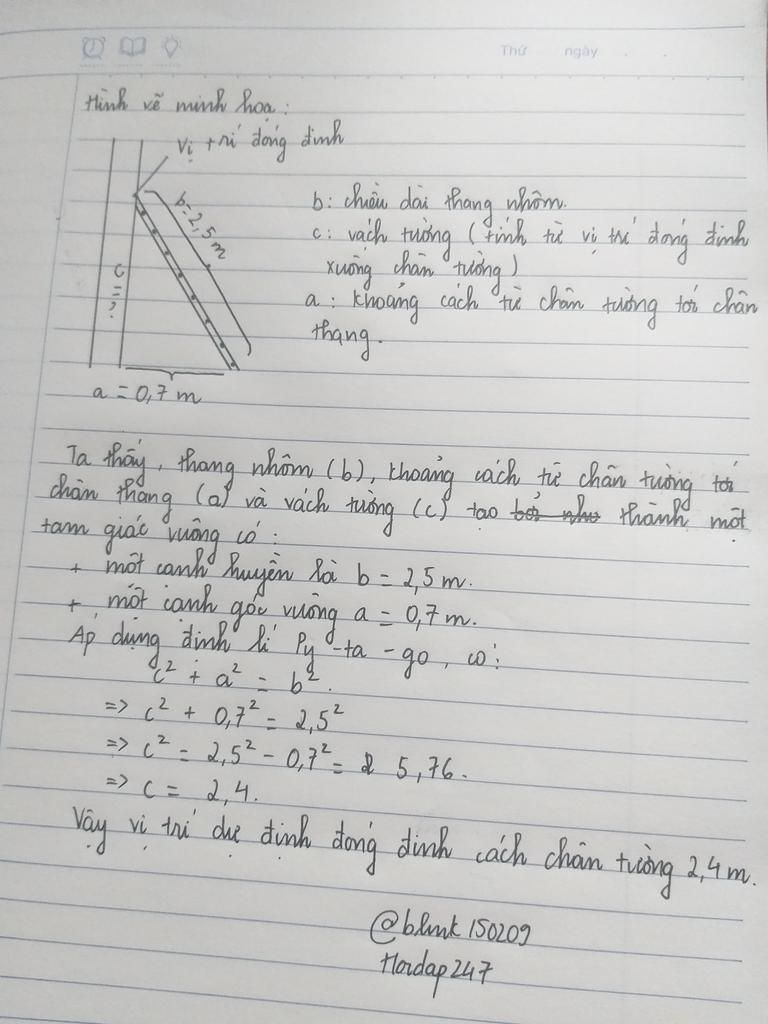 Thứ ngày
Hình vẽ minh họa:
Vị trí đóng đinh
b = 2,5 m
c = ?
a = 0,7 m
b: chiều dài thang nhôm.
c: vách tường (tính từ vị trí đóng đinh
xuống chân tường)
a: khoảng cách từ chân tường tới chân
thang.
Ta thấy, thang nhôm (b), khoảng cách từ chân tường tới
chân thang (a) và vách tường (c) tạo thành một
tam giác vuông có:
+ một cạnh huyền là b = 2,5 m.
+ một cạnh góc vuông a = 0,7 m.
Áp dụng định lí Py-ta-go, có:
c² + a² = b².
=> c² + 0,7² = 2,5²
=> c² = 2,5² - 0,7² = 5,76.
=> c = 2,4.
Vậy vị trí dự định đóng đinh cách chân tường 2,4 m.
@blink150209
Hoidap247